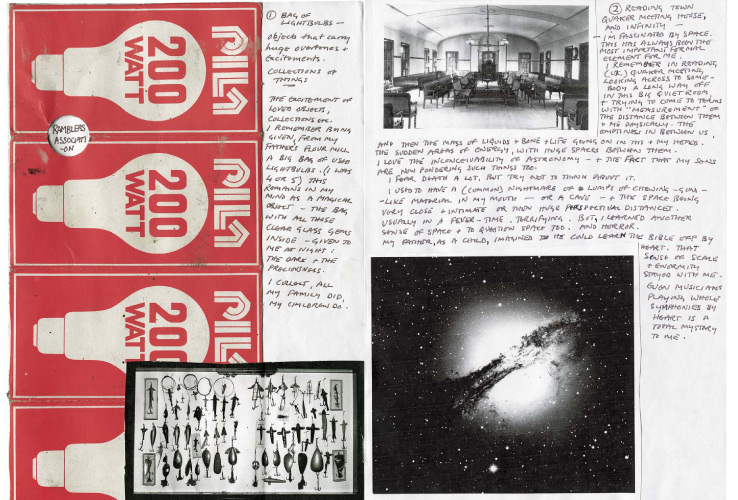 PILA
200
WATT
RAMBLERS
ASSOCIATI
-ON
PILA
200
WATT
PILA
200
WATT
① BAG OF
LIGHTBULBS —
objects that carry
huge overtones +
excitements.
COLLECTIONS OF
THINGS
—
THE EXCITEMENT OF
LOVED OBJECTS,
COLLECTIONS ETC.
I REMEMBER BEING
GIVEN, FROM MY
FATHERS FLOUR MILL,
A BIG BAG OF USED
LIGHTBULBS. (I WAS
4 OR 5) THIS
REMAINS IN MY
MIND AS A MAGICAL
OBJECT - THE BAG
WITH ALL THESE
CLEAR GLASS GEMS
INSIDE - GIVEN TO
ME AT NIGHT:
THE DARK + THE
PRECIOUSNESS.
I COLLECT, ALL
MY FAMILY DID,
MY CHILDREN DO.
② READING TOWN
QUAKER MEETING HOUSE,
AND INFINITY —
I'M FASCINATED BY SPACE.
THIS HAS ALWAYS BEEN THE
MOST IMPORTANT FORMAL
ELEMENT FOR ME.
I REMEMBER IN READING,
(UK) QUAKER MEETING,
LOOKING ACROSS TO SOME-
BODY A LONG WAY OFF
IN THIS BIG QUIET ROOM,
+ TRYING TO COME TO TERMS
WITH "MEASUREMENT" OR
THE DISTANCE BETWEEN THEM
+ ME PHYSICALLY. THE
EMPTINESS IN BETWEEN US,
AND THEN THE MASS OF LIQUIDS + BONE + LIFE GOING ON IN THIS + MY HEADS.
THE SUDDEN AREAS OF ENERGY, WITH HUGE SPACES BETWEEN THEM.
I LOVE THE INCONCEIVABILITY OF ASTRONOMY — + THE FACT THAT MY SONS
ARE NOW PONDERING SUCH THINGS TOO.
I FEAR DEATH A LOT, BUT TRY NOT TO THINK ABOUT IT.
I USED TO HAVE A (COMMON) NIGHTMARE OF LUMPS OF CHEWING-GUM-
-LIKE MATERIAL IN MY MOUTH — OR A CAVE — + THE SPACE BEING
VERY CLOSE + INTIMATE OR THEN HUGE PERSPECTIVAL DISTANCES.
USUALLY IN A FEVER-TIME. TERRIFYING. BUT, I LEARNED ANOTHER
SENSE OF SPACE + TO QUESTION SPACE TOO. AND HORROR.
MY FATHER, AS A CHILD, IMAGINED HE COULD LEARN THE BIBLE OFF BY
HEART. THAT
SENSE OF SCALE
+ ENORMITY
STAYED WITH ME.
EVEN MUSICIANS
PLAYING WHOLE
SYMPHONIES BY
HEART IS A
TOTAL MYSTERY
TO ME.